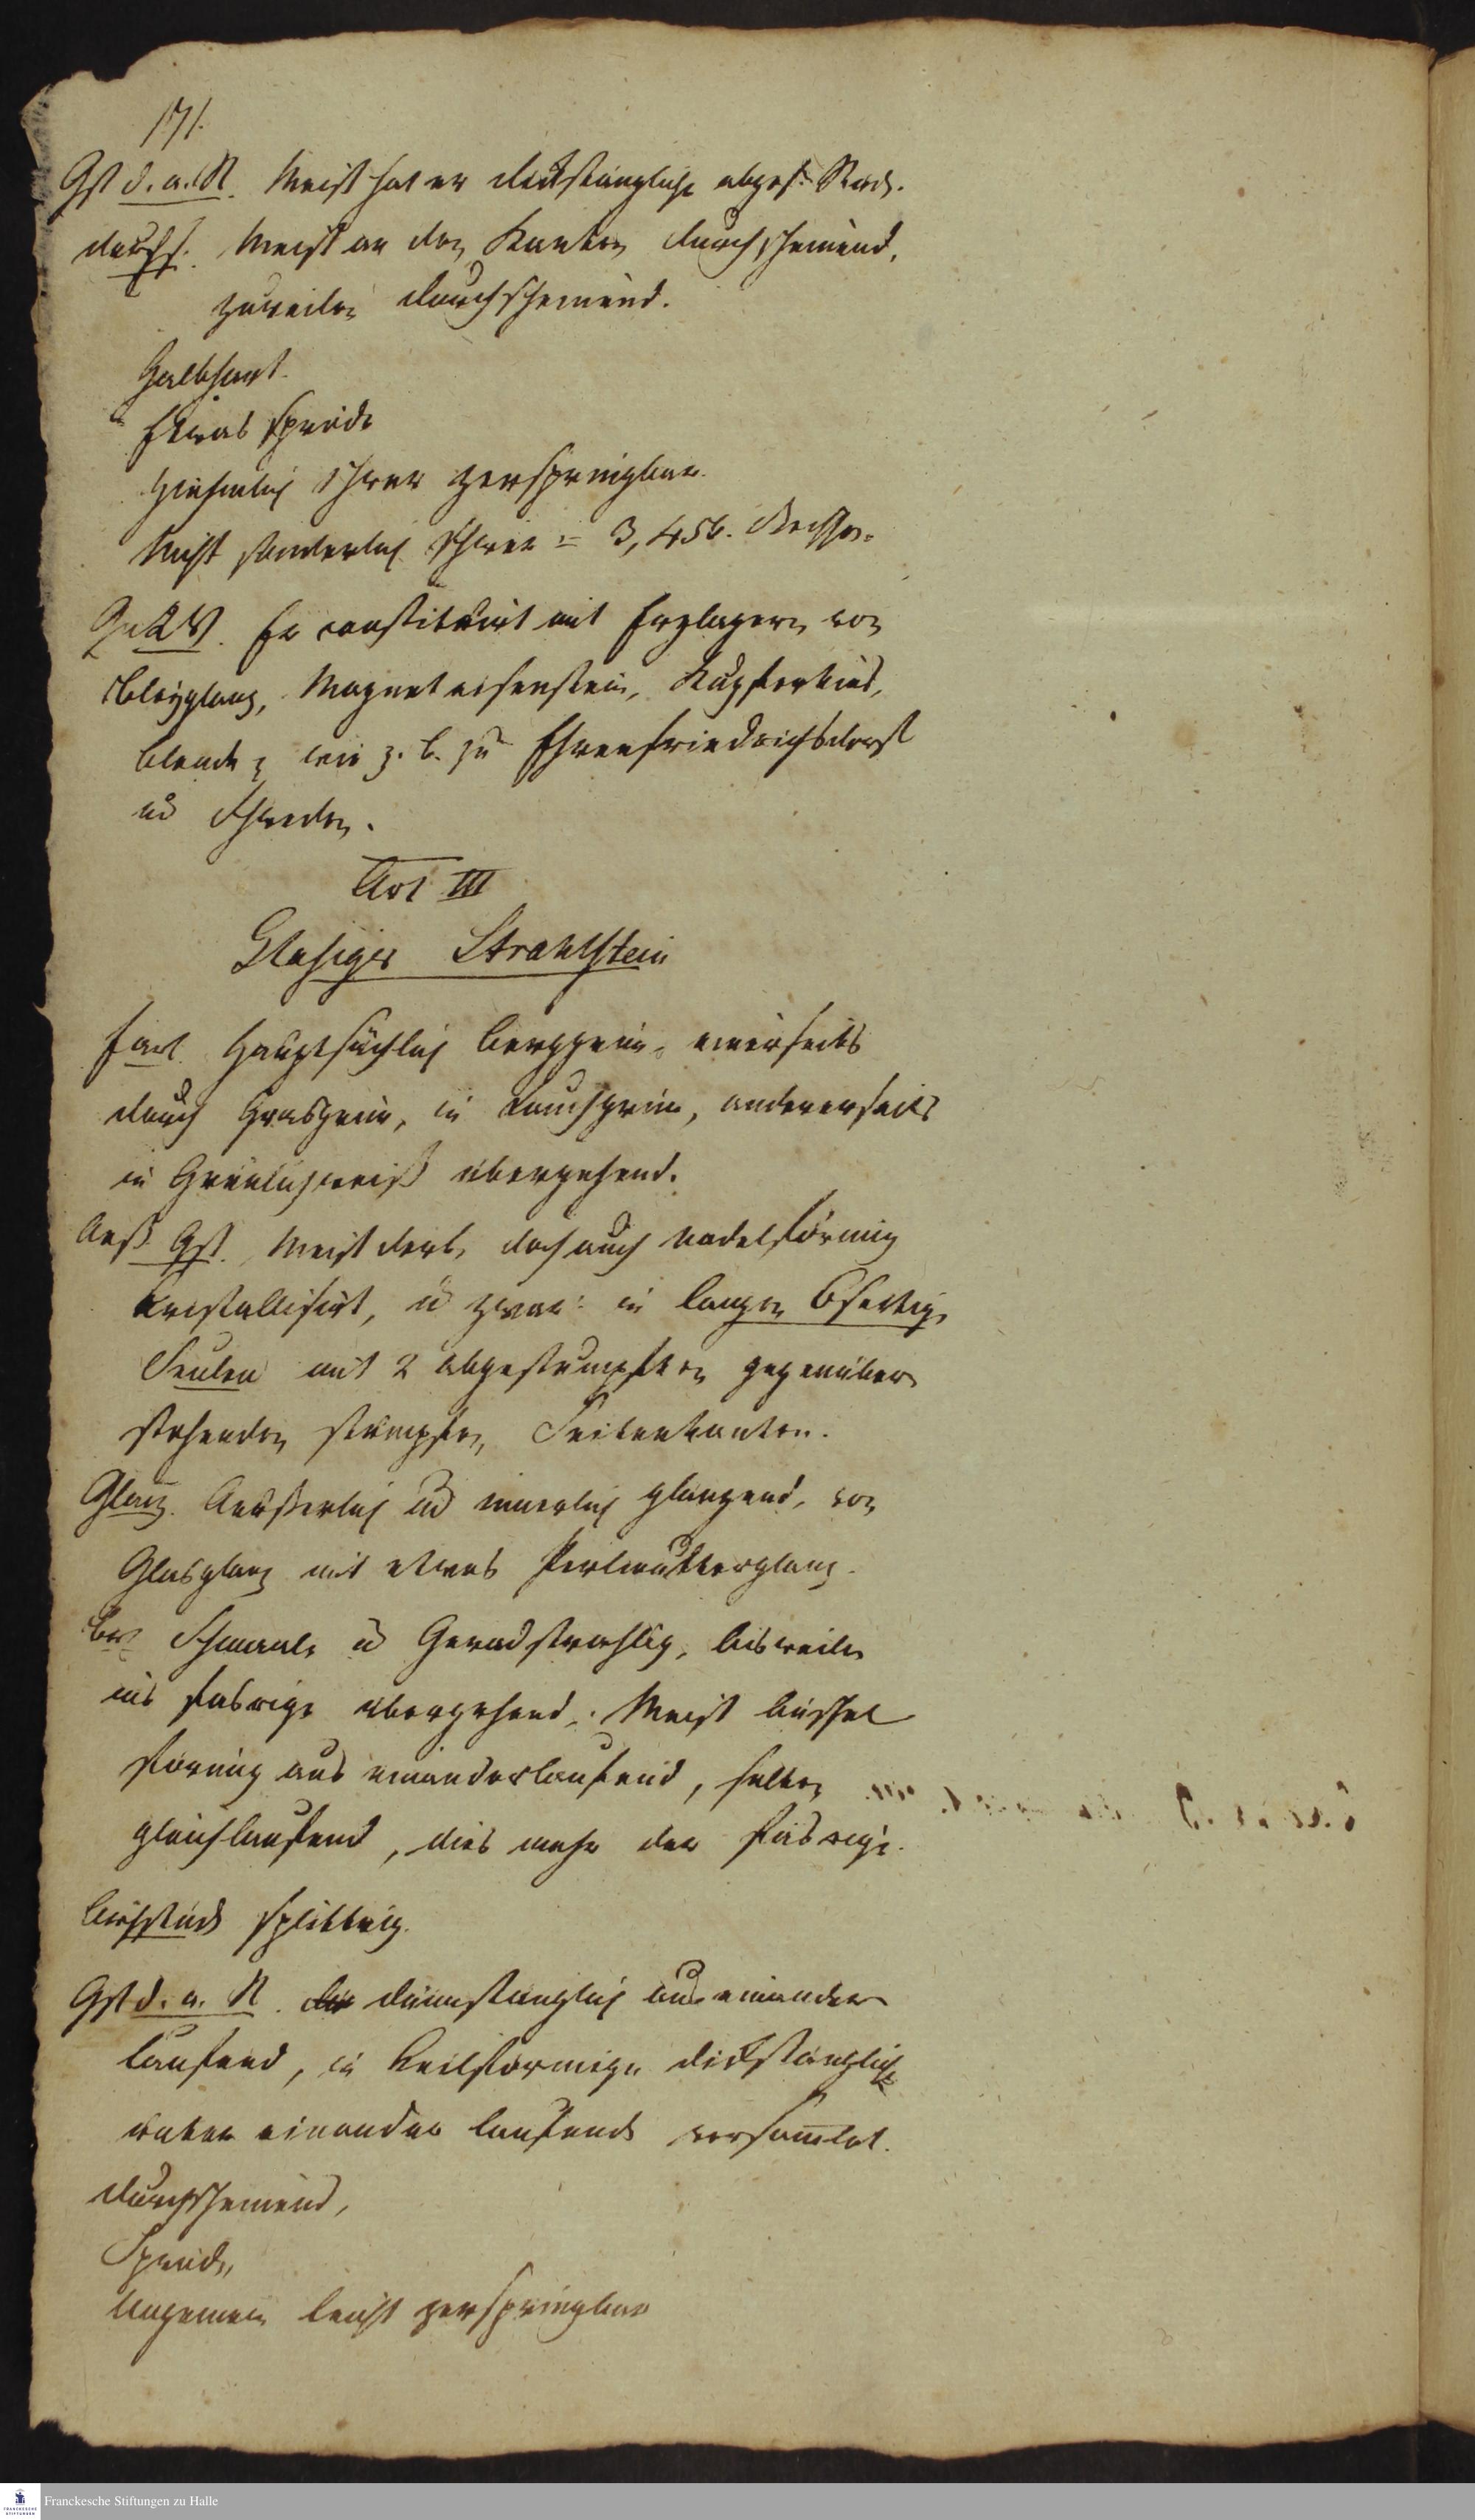 171.
Gst d. a. St. Meist hat er dickstängliche abges. Stück.
durchs. Meist an den Kanten durchscheinend,
zuweilen durchscheinend.
Halbhart.
Etwas spröde
Ziehmlich schwer zerspringbar.
Nicht sonderlich schwer =
G u LW. Er constituirt mit Erzlagern von
Bleyglanz, Magneteisenstein, Kupferkies,
Blende, wie z. B. zu Ehrenfriedrichsdorf
ud Schweden.
Art III
Glasiger Strahlstein
Farb. Hauptsächlich Berggrün, einerseits
durch Grasgrün, in Lauchgrün, andererseits
in Grünlichweiß übergehend.
Aeß Gst. Meist derb, doch auch nadelförmig
kristallisirt, u zwar: in langen 6seitig.
Seulen mit 2 abgestumpften gegenüber
stehenden stumpfen Seitenkanten.
Glanz. Aeußerlich ud innerlich glänzend, von
Glasglanz mit etwas Perlmutterglanz.
Br. Schmal u Geradstrahlig, bisweilen
ins fasrige übergehend. Meist büschel
förmig aus einanderlaufend, selten
gleichlaufend, dies mehr der fasrige.
Bruchstück splittrig.
Gst d. a. St. dünnstänglich aus einander
laufend, in keilförmige dickstänglich
unter einander laufend versamlet.
Durchscheinend,
Spröde,
Ungemein leicht zerspringbar
Franckesche Stiftungen zu Halle